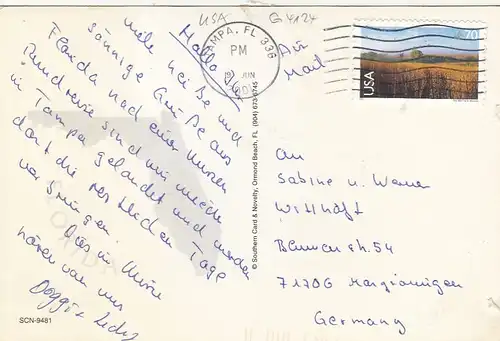 USA G 4124
Hallo Ihr
viele heiße und
sonnige Grüße aus
Florida nach einer kurzen
Rundreise sind wir wieder
in Tampa gelandet und werden
dort die restlichen Tage
verbringen. Dies in Kürze
hören von uns
TAMPA, FL 336
PM
JUN
Air
Mail
USA
70
An
Sabine u. Werner
Witthöft
Blumenstr. 54
71706 Markgröningen
Germany
© Southern Card & Novelty, Ormond Beach, FL (904) 673-6745
FLORIDA
SCN-9481